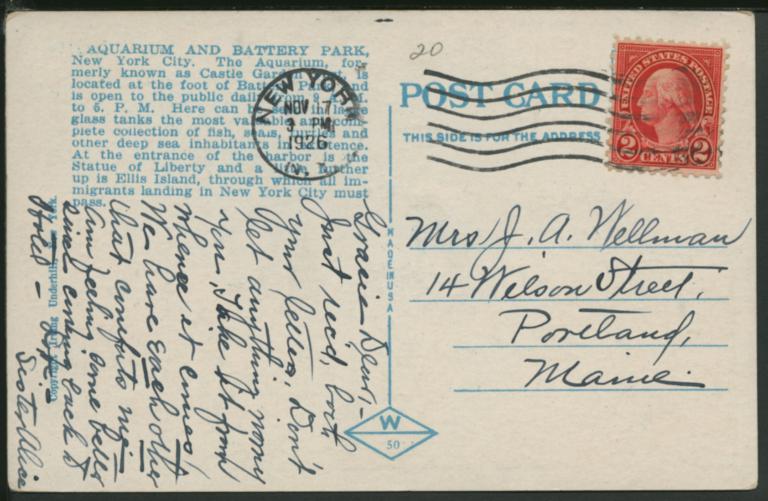 AQUARIUM AND BATTERY PARK,
New York City. The Aquarium, for-
merly known as Castle Garden, is
located at the foot of Battery Park and
is open to the public daily from 9 A. M.
to 6. P. M. Here can be seen in large
glass tanks the most valuable and com-
plete collection of fish, seals, turtles and
other deep sea inhabitants in existence.
At the entrance of the harbor is the
Statue of Liberty and a little further
up is Ellis Island, through which all im-
migrants landing in New York City must
pass.
20
NEW YORK
NOV 17
3 PM
1926
N.Y.
POST CARD
THIS SIDE IS FOR THE ADDRESS
UNITED STATES POSTAGE
2 CENTS 2
Mrs J. A. Wellman
14 Wilson Street,
Portland,
Maine.
MADE IN USA
W
50
Copyright Irving Underhill, New York.
Gracie Dear,-
Just recd, both
your letters, Don't
let anything worry
you, Take it from
whence it comes,
We have each other
that comforts me-
Am feeling some better
since coming back to
Hotel -
Sister Alice